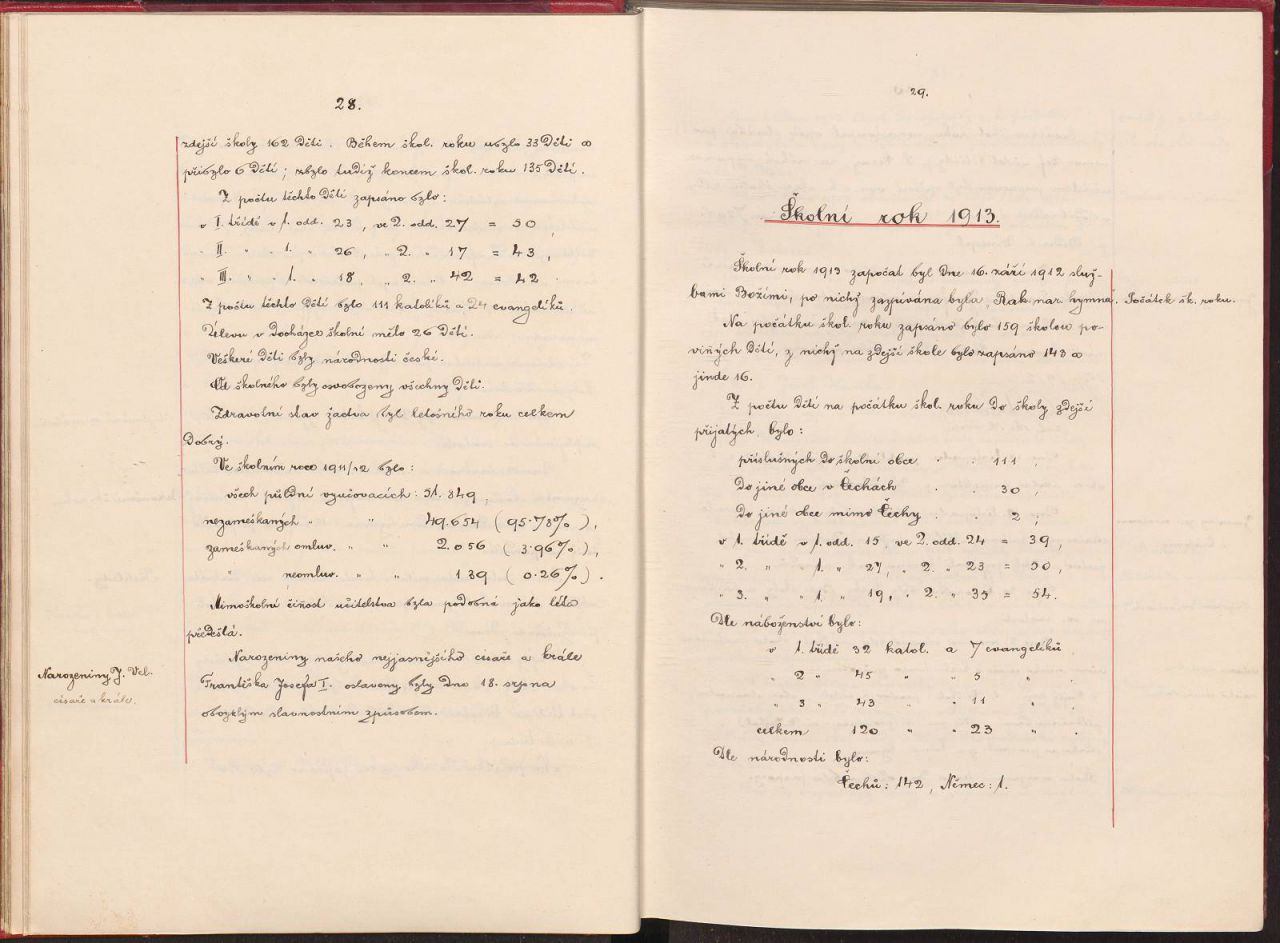 28.
zdejší školy 162 dětí. Během škol. roku ubylo 33 dětí a
přibylo 6 dětí; zbylo tudíž koncem škol. roku 135 dětí.
Z počtu těchto dětí zapsáno bylo:
v I. třídě v 1. odd. 23, ve 2. odd. 27 = 50,
" II. " " 1. " 26, " 2. " 17 = 43,
" III. " " 1. " 18, " 2. " 42 = 42.
Z počtu těchto dětí bylo 111 katolíků a 24 evangelíků.
Úlevu v docházce školní mělo 26 dětí.
Veškeré děti byly národnosti české.
Od školného byly osvobozeny všechny děti.
Zdravotní stav žactva byl letošního roku celkem
dobrý.
Ve školním roce 1911/12 bylo:
všech půldní vyučovacích: 51.849,
nezameškaných " " 49.654 (95.78%),
zameškaných omluv. " " 2.056 (3.96%),
" neomluv. " " 139 (0.26%).
Mimoškolní činost učitelstva byla podobná jako léta
předešlá.
Narozeniny J. Vel.
císaře a krále.
Narozeniny našeho nejjasnějšího císaře a krále
Františka Josefa I. oslaveny byly dne 18. srpna
obvyklým slavnostním způsobem.
29.
Školní rok 1913.
Školní rok 1913 započat byl dne 16. září 1912 služ-
bami Božími, po nichž zazpívána byla Rak. nar. hymna.
Počátek šk. roku.
Na počátku škol. roku zapsáno bylo 159 školou po-
viných dětí, z nichž na zdejší škole bylo zapsáno 143 a
jinde 16.
Z počtu dětí na počátku škol. roku do školy zdejší
přijatých, bylo:
příslušných do školní obce . . 111,
do jiné obce v Čechách . . 30,
do jiné obce mimo Čechy . . 2;
v 1. třídě v 1. odd. 15, ve 2. odd. 24 = 39,
" 2. " " 1. " 27, " 2. " 23 = 50,
" 3. " " 1 " 19, " 2. " 35 = 54.
Dle náboženství bylo:
v 1. třídě 32 katol. a 7 evangelíků,
" 2 " 45 " " 5 " ,
" 3 " 43 " " 11 " .
celkem 120 " " 23 " .
Dle národnosti bylo:
Čechů: 142, Němec: 1.